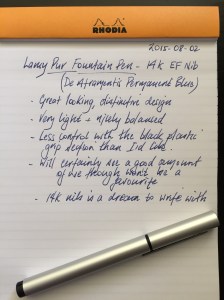 RHODIA
2015-08-02
Lamy Pur Fountain Pen - 14k EF Nib
(De Atramentis Permanent Blue)
- Great looking, distinctive design
- Very light + nicely balanced
- Less control with the black plastic
grip section than I'd like.
- Will certainly see a good amount
of use though won't be a
favourite
- 14k nib is a dream to write with